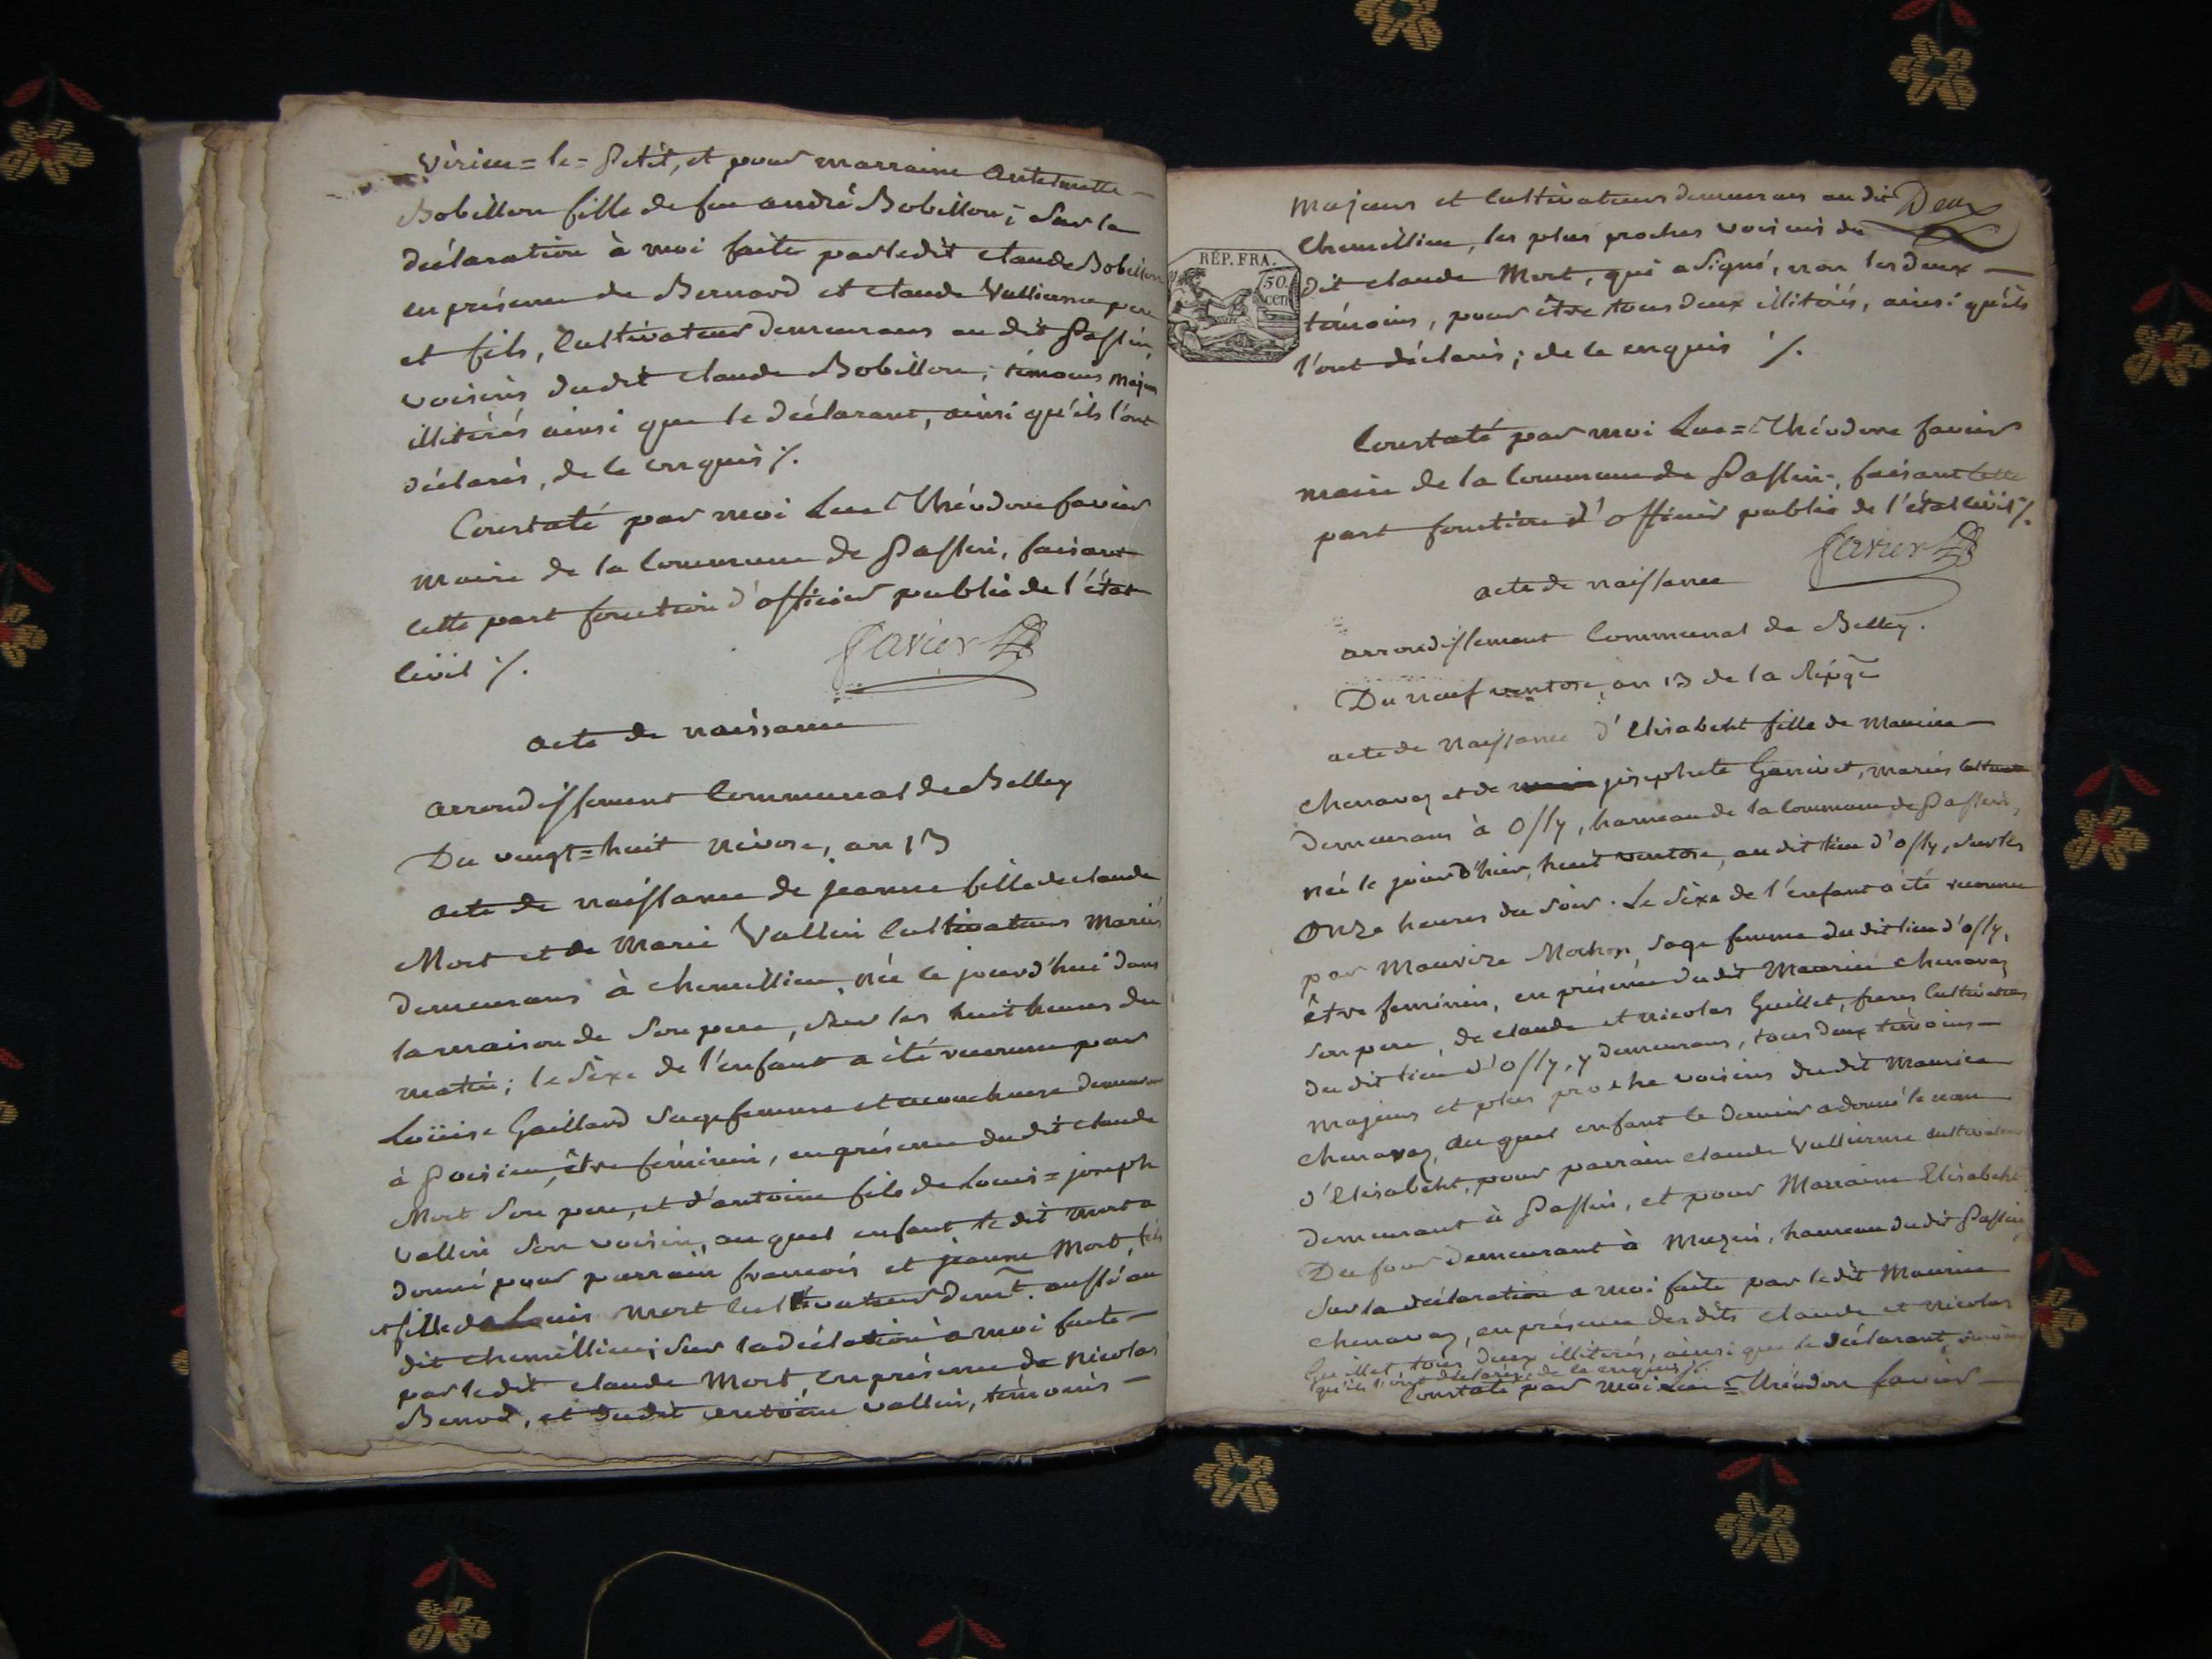 Virieu=le=Petit, et pour marraine Antelmette
Bobillon fille de feu andré Bobillon; Sur la
déclaration à moi faite par ledit Claude Bobillon
en présence de Bernard et Claude Vallierme pere
et fils, Cultivateurs demeurans au dit Passin,
voisins du dit Claude Bobillon, témoins Majeurs
illitérés ainsi que le déclarant, ainsi qu'ils l'ont
déclarés, de ce enquis /.
Constaté par moi Luc Théodore favier
maire de la Commune de Passin, faisant
cette part fonction d'officier public de l'état
Civil /.
Favier
acte de naissance
arrondissement Communal de Belley
Du vingt=huit nivose, an 13
acte de naissance de jeanne fille de Claude
Mort et de Marie Vallin Cultivateurs Mariés
demeurans à chemillieu, née ce jourd'hui dans
la maison de Son pere, Sur les huit heures du
matin; le Sexe de l'enfant a été reconnu par
Loüise Gaillard Sagefemme et accoucheuse demeurant
à Poisieu, être féminin, en présence du dit Claude
Mort Son pere, et d'antoine fils de Louis=joseph
Vallin Son voisin, au quel enfant le dit Mort a
donné pour parrain françois et jeanne Mort, fils
et fille de Louis Mort Cultivateur demt. aussi au
dit chemillieu; Sur la déclation a moi faite
par le dit Claude Mort en présence de Nicolas
Benod, et du dit antoine vallin, témoins
Majeurs et Cultivateurs demeurans au dit Deux
Chemillieu, les plus proches voisins du
RÉP. FRA.
50
cen
dit Claude Mort, qui a Signé, non les deux
témoins, pour être tous deux illitérés, ainsi qu'ils
l'ont déclarés; de ce enquis /.
Constaté par moi Luc=Théodore favier
maire de la Commune de Passin, faisant cette
part fonction d'officier public de l'état Civil /.
Favier
acte de naissance
arrondissement Communal de Belley.
Du neuf ventose, an 13 de la Répq̃e
acte de Naissance d'Elisabeht fille de Maurice
Chenavaz et de josephete Ganivet, mariés
demeurans à Ossy, hameau de la Commune de Passin,
née le jour d'hier, huit ventose, au dit lieu d'ossy, Sur les
Onze heures du Soir. Le Sexe de l'enfant a été reconnu
par Maurize Mochon, Sage femme du dit lieu d'ossy,
être feminin, en présence du dit Maurice Chenavaz
Son pere, de Claude et Nicolas Guillet, freres Cultivateurs
du dit lieu d'Ossy, y demeurans, tous deux témoins
majeurs et plus proche voisins du dit Maurice
Chenavaz, au quel enfant le dernier a donné le nom
d'Elisabeht, pour parrain Claude Vallierme cultivateur
demeurant à Passin, et pour Marraine Elisabeht
Du four demeurant à Muzin, hameau du dit Passin,
Sur la déclaration a moi faite par le dit Maurice
Chenavaz, en présence des dits Claude et Nicolas
Guillet, tous deux illiterés, ainsi que le déclarant,
qu'ils l'ont déclarés, de ce enquis /.
Constaté par moi Luc=Théodore favier